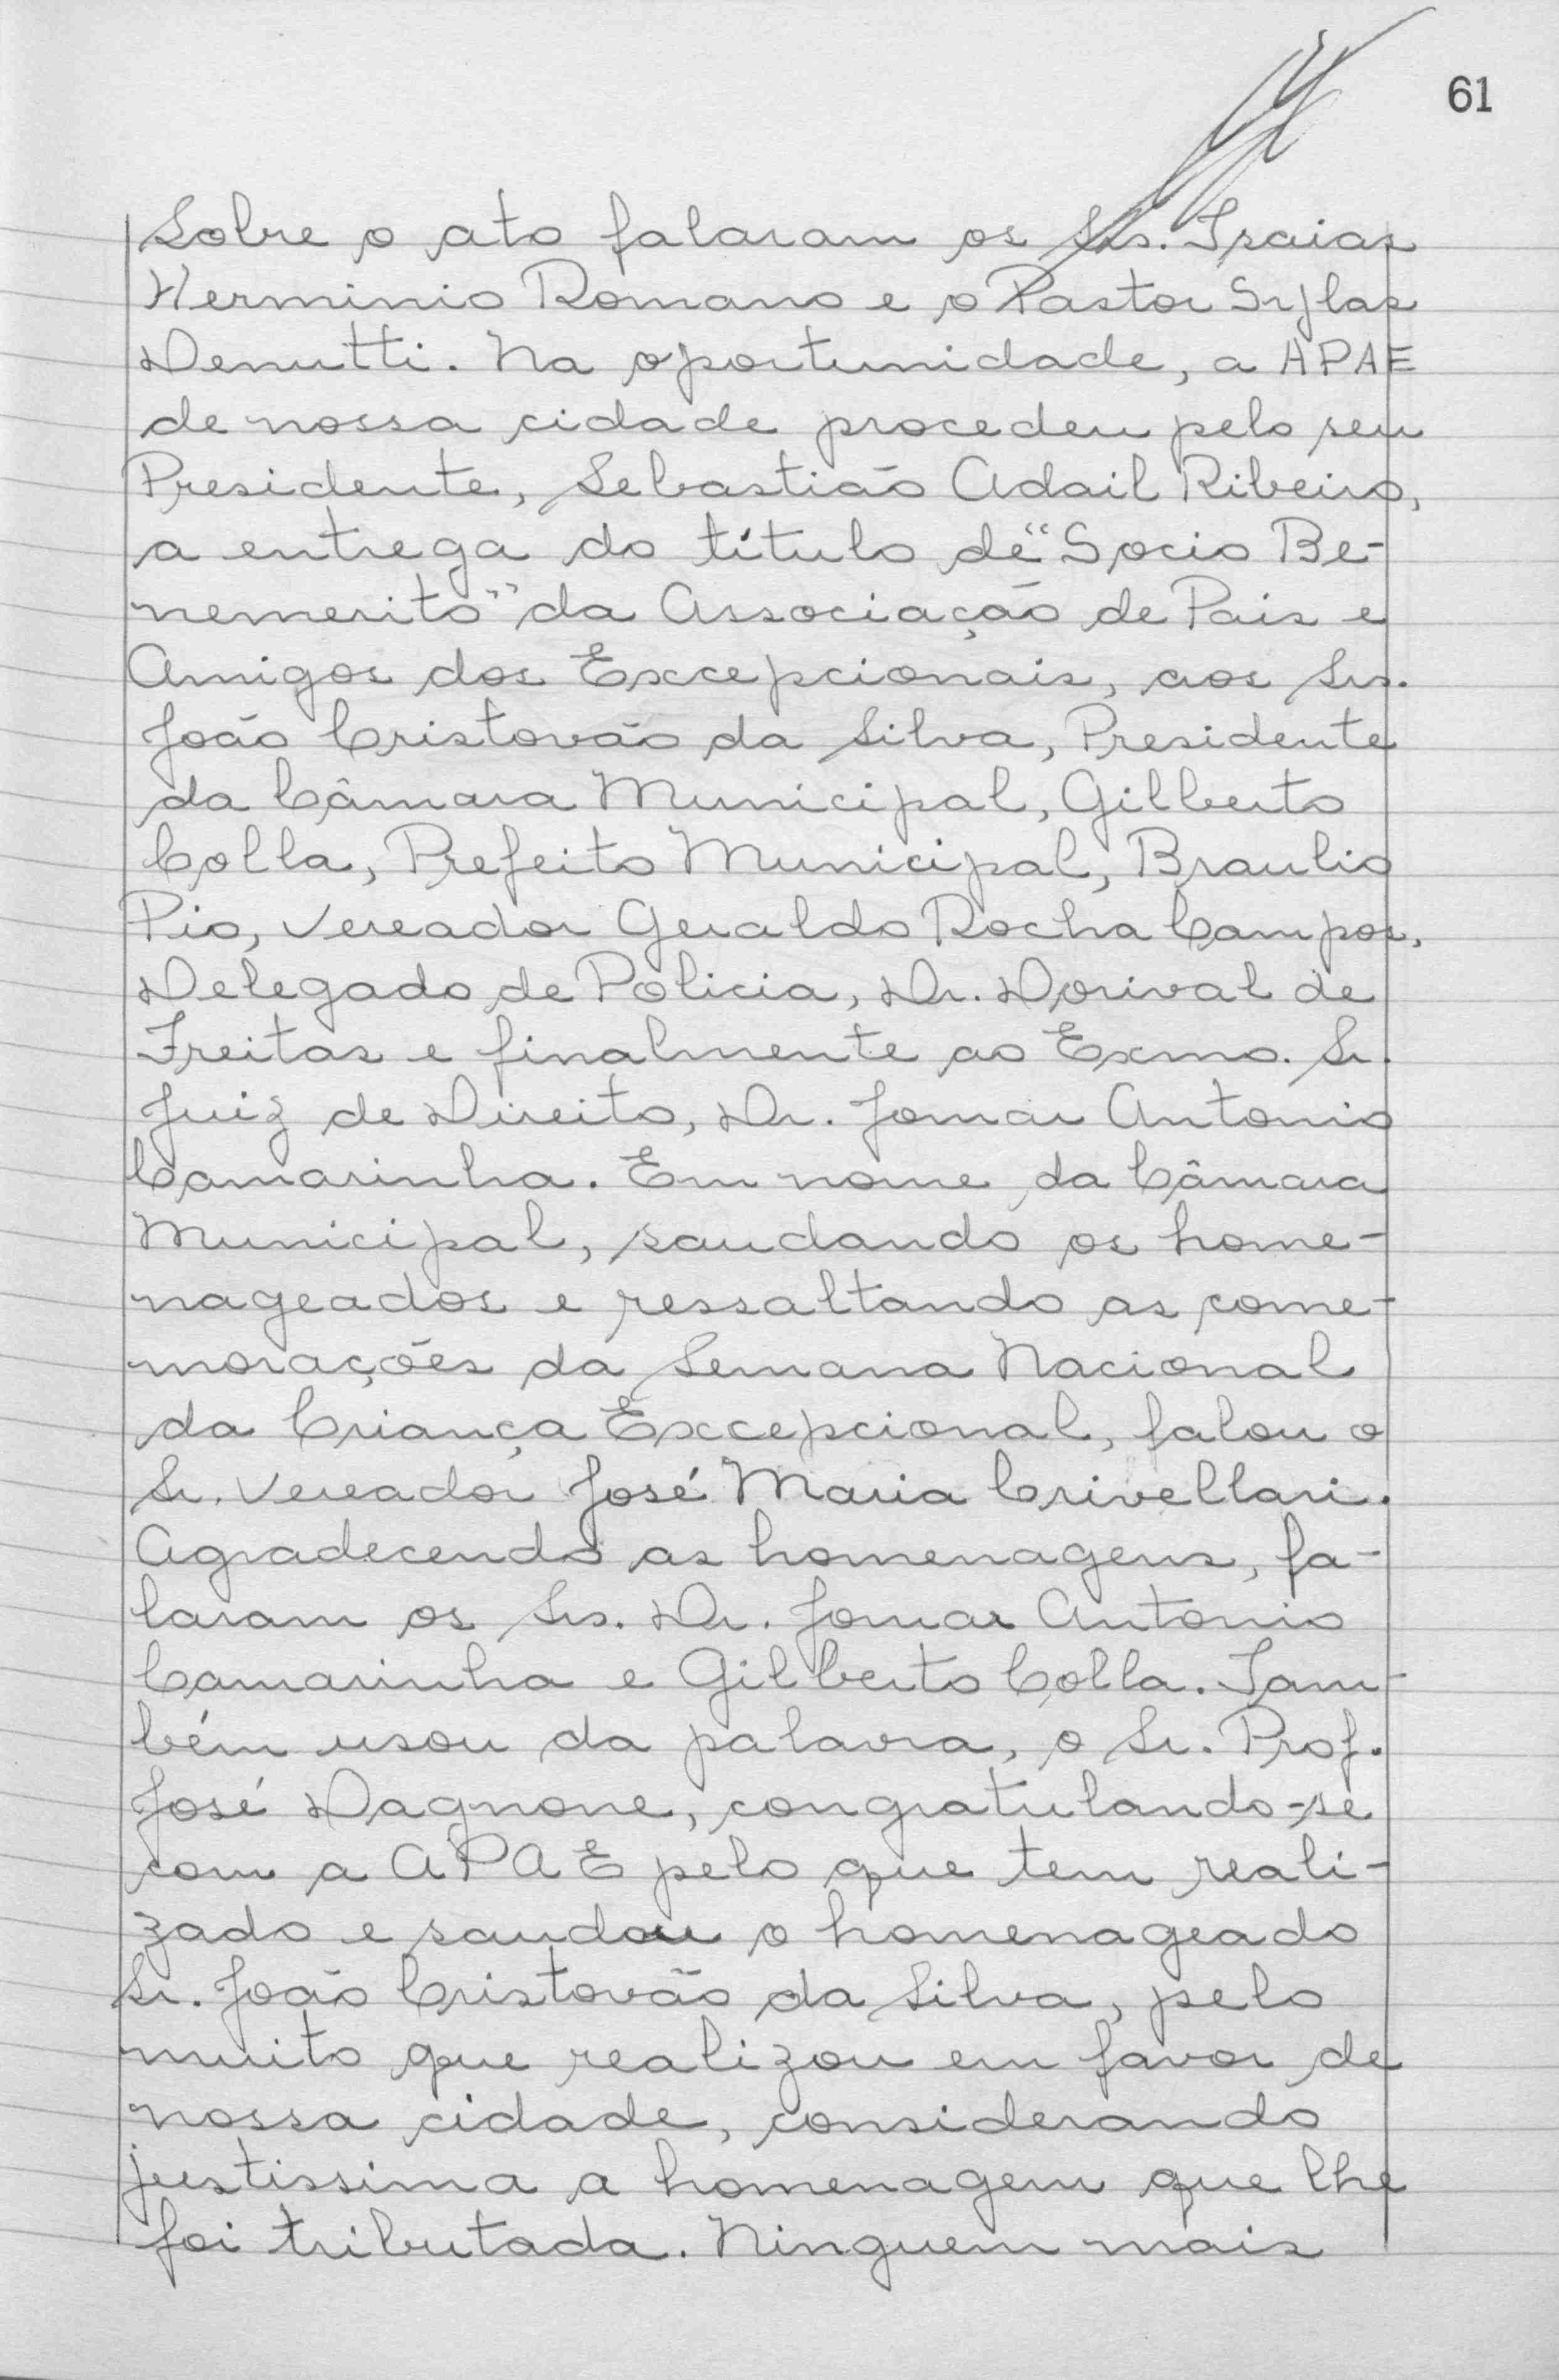 61
Sobre o ato falaram os Srs. Isaias
Herminio Romano e o Pastor Sylas
Denutti. Na oportunidade, a APAE
de nossa cidade procedeu pelo seu
Presidente, Sebastião Adail Ribeiro,
a entrega do título de "Socio Be-
nemerito" da Associação de Pais e
Amigos dos Excepcionais, aos Srs.
João Cristovão da Silva, Presidente
da Câmara Municipal, Gilberto
Colla, Prefeito Municipal, Braulio
Pio, Vereador Geraldo Rocha Campos,
Delegado de Policia, Dr. Dorival de
Freitas e finalmente ao Exmo. Sr.
Juiz de Direito, Dr. Jomar Antonio
Camarinha. Em nome da Câmara
Municipal, saudando os home-
nageados e ressaltando as come-
morações da Semana Nacional
da Criança Excepcional, falou o
Sr. Vereador José Maria Crivellari.
Agradecendo as homenagens, fa-
laram os Srs. Dr. Jomar Antonio
Camarinha e Gilberto Colla. Tam-
bém usou da palavra, o Sr. Prof.
José Dagnone, congratulando-se
com a APAE pelo que tem reali-
zado e saudou o homenageado
Sr. João Cristovão da Silva, pelo
muito que realizou em favor de
nossa cidade, considerando
justissima a homenagem que lhe
foi tributada. Ninguem mais